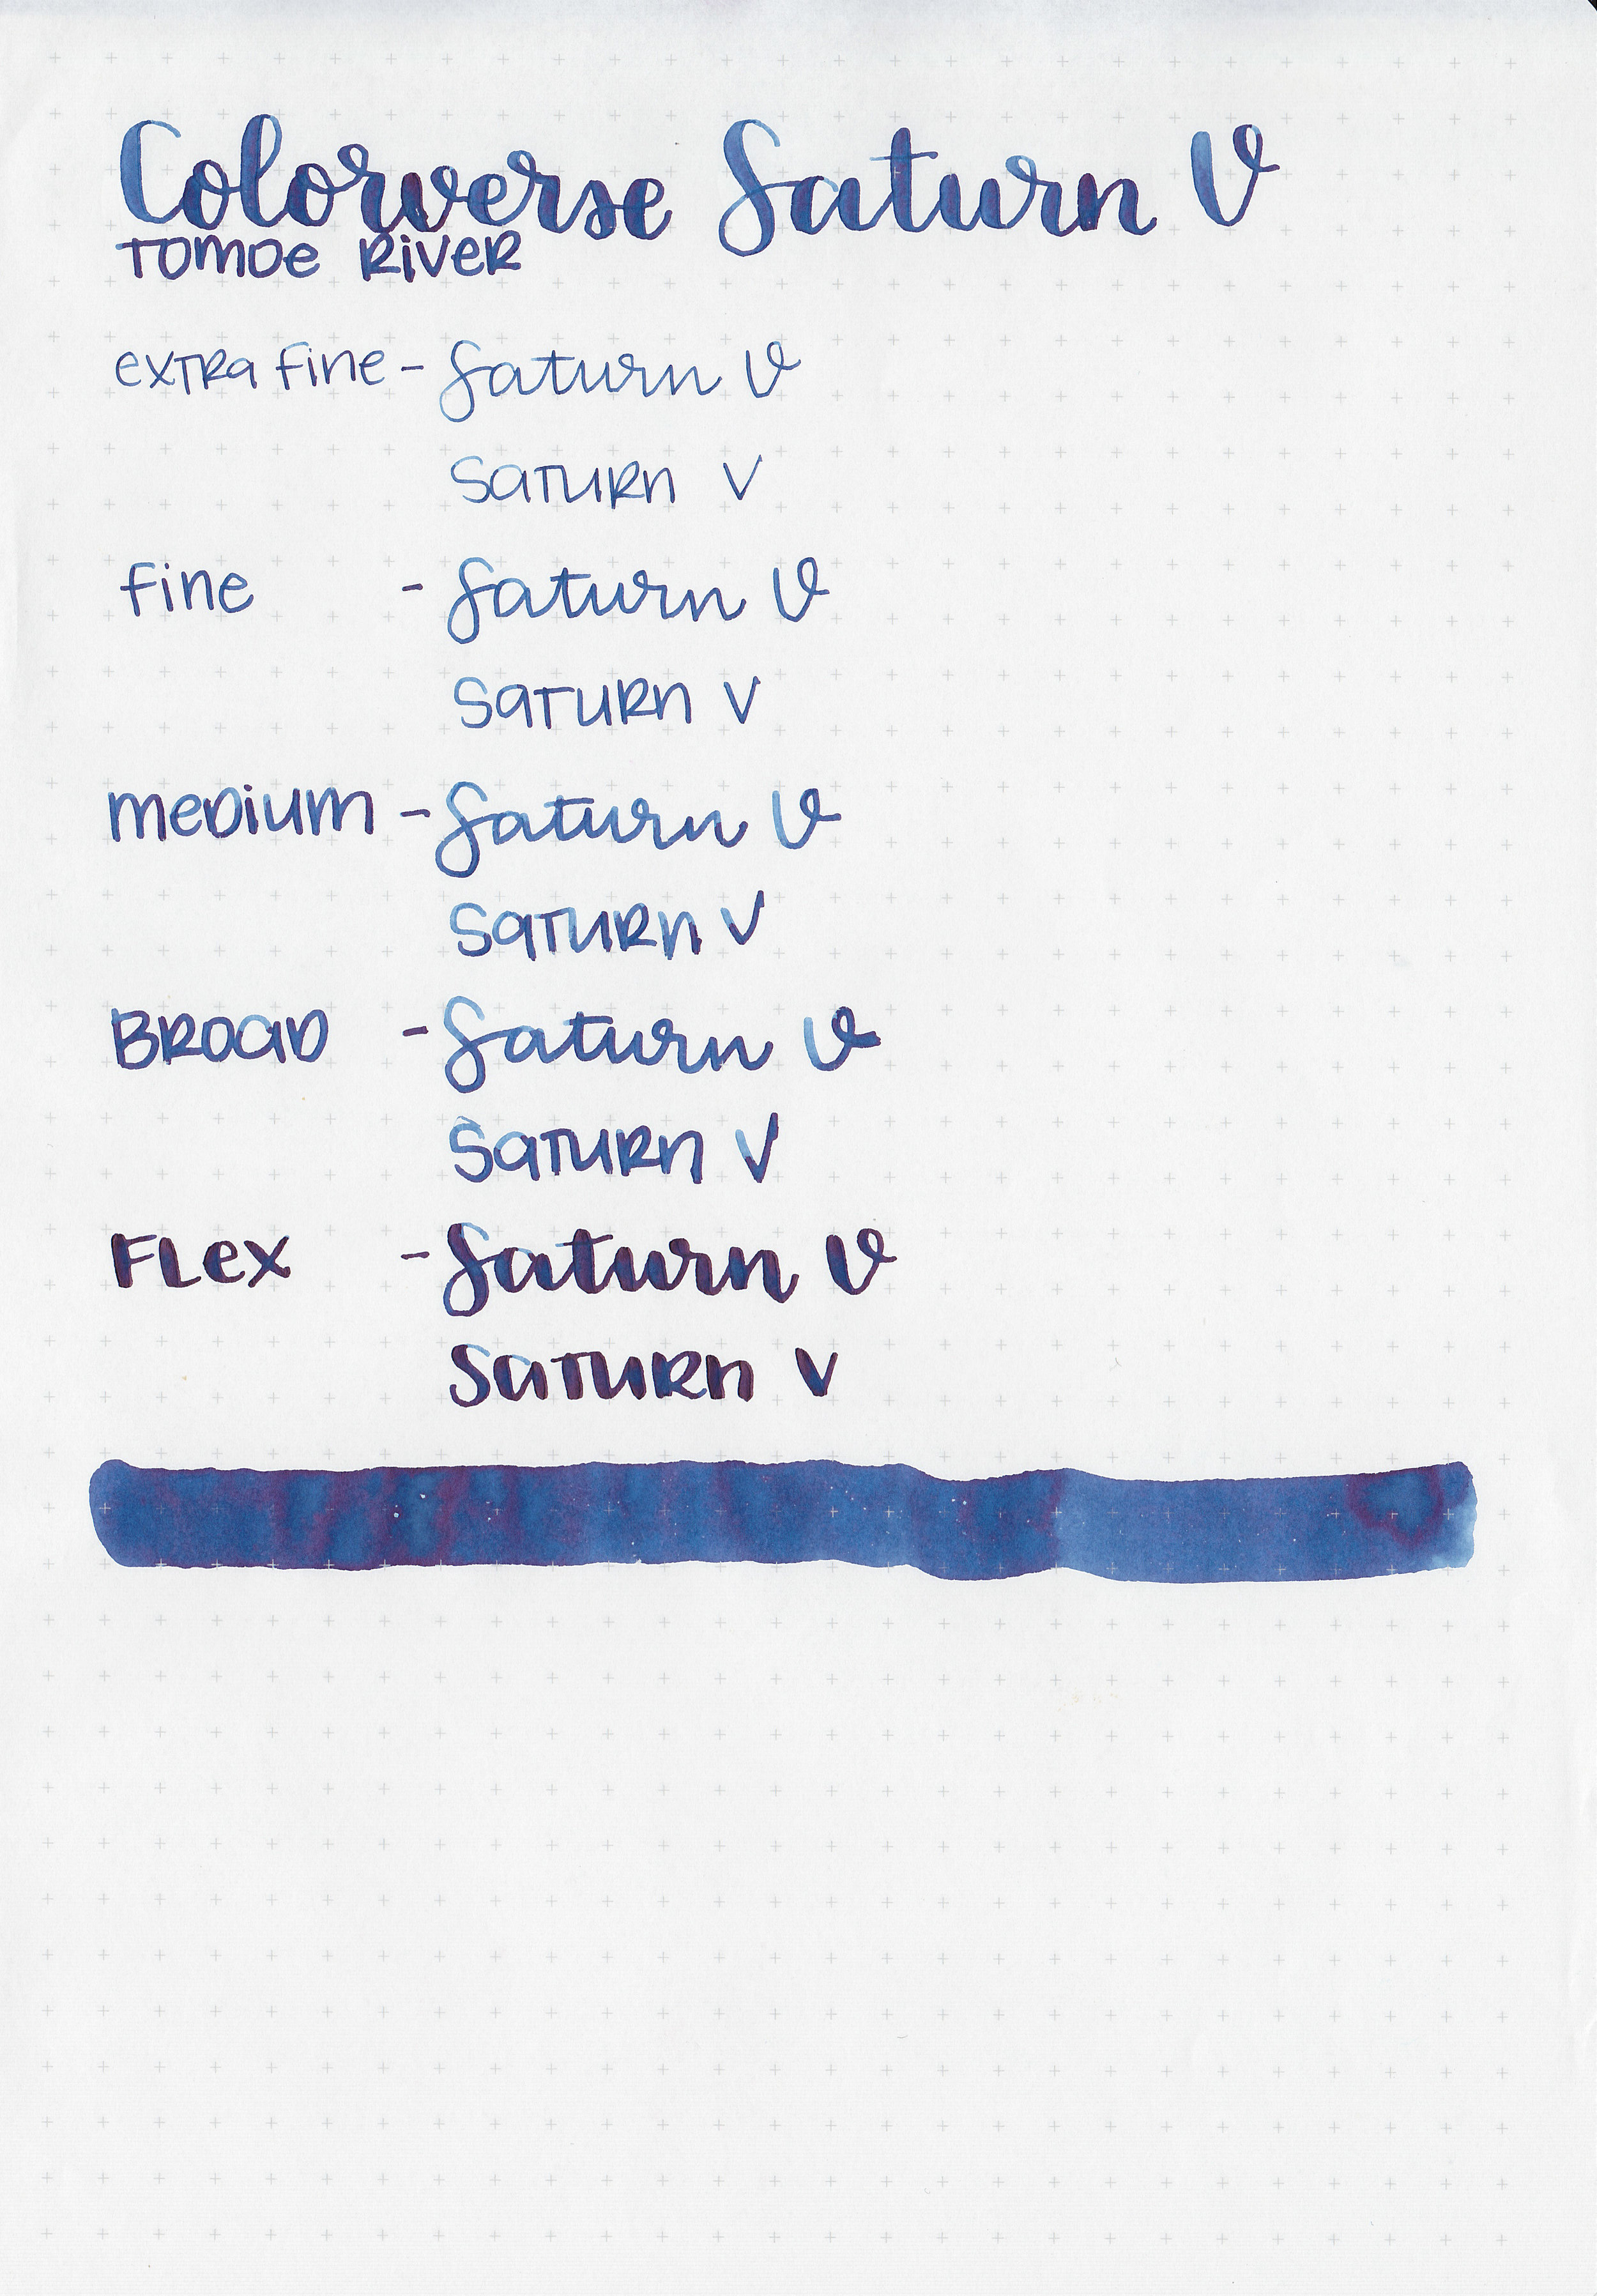 Colorverse Saturn V
TOMOE RiVeR
exTRa fine - Saturn V
SaTURn V
fine - Saturn V
SaTURn V
meDium - Saturn V
SaTURn V
BROaD - Saturn V
SaTURn V
FLex - Saturn V
SaTURn V